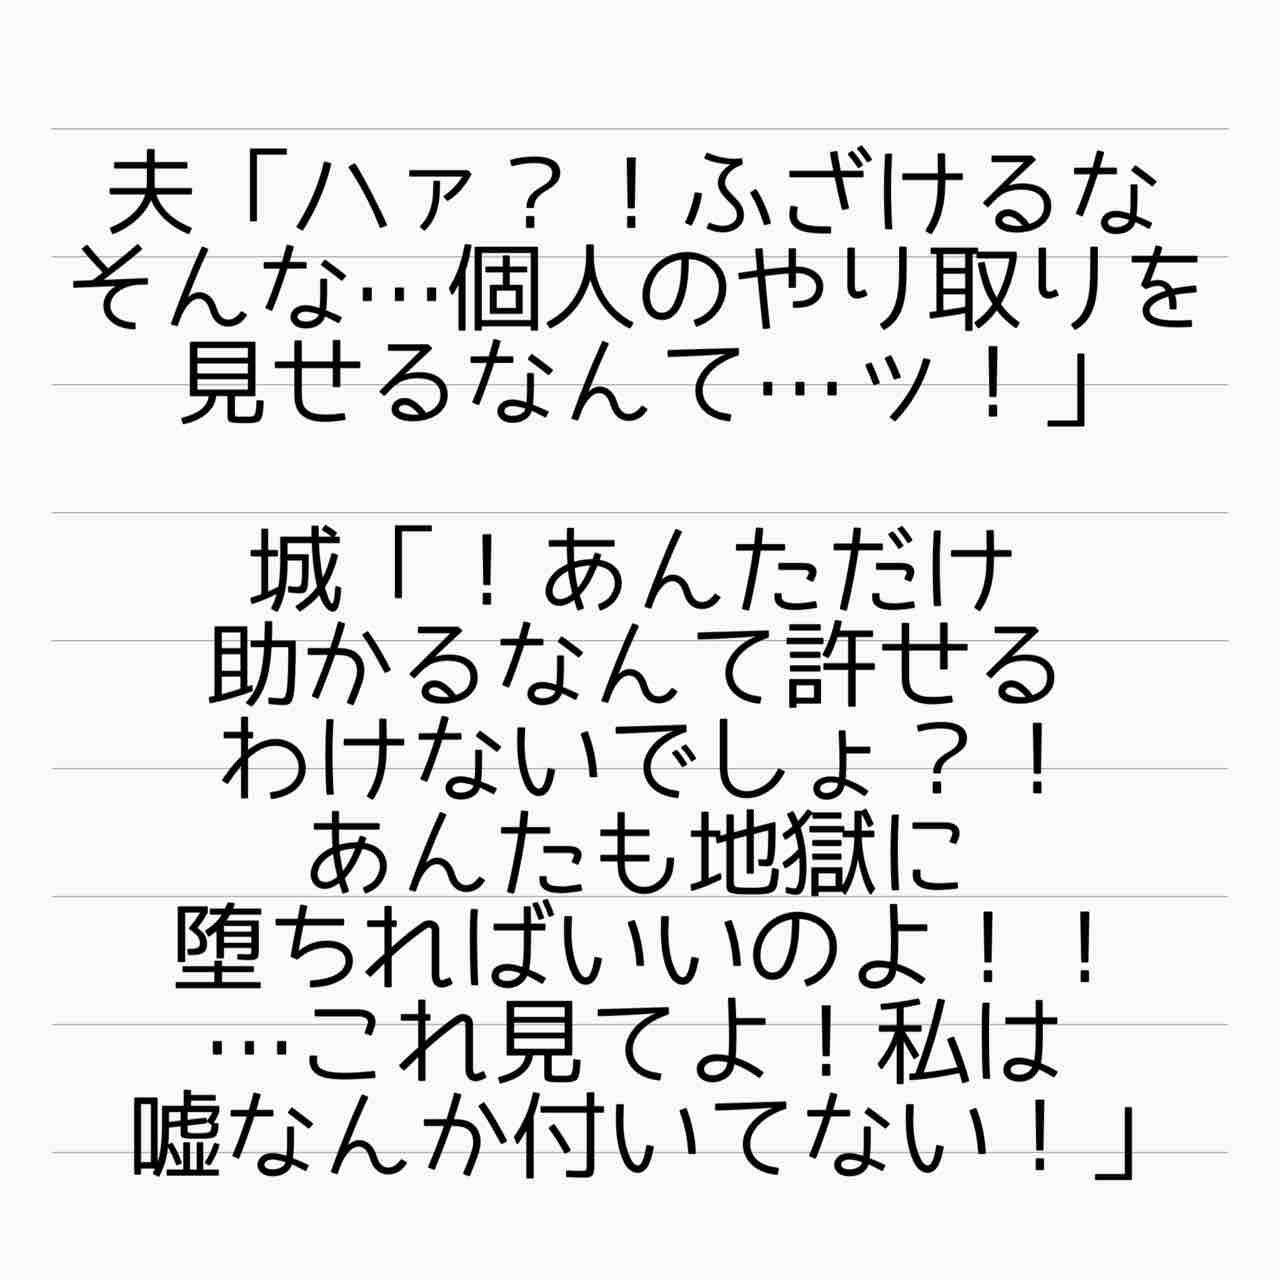 夫「ハァ？！ふざけるな
そんな…個人のやり取りを
見せるなんて…ッ！」
城「！あんただけ
助かるなんて許せる
わけないでしょ？！
あんたも地獄に
堕ちればいいのよ！！
…これ見てよ！私は
嘘なんか付いてない！」